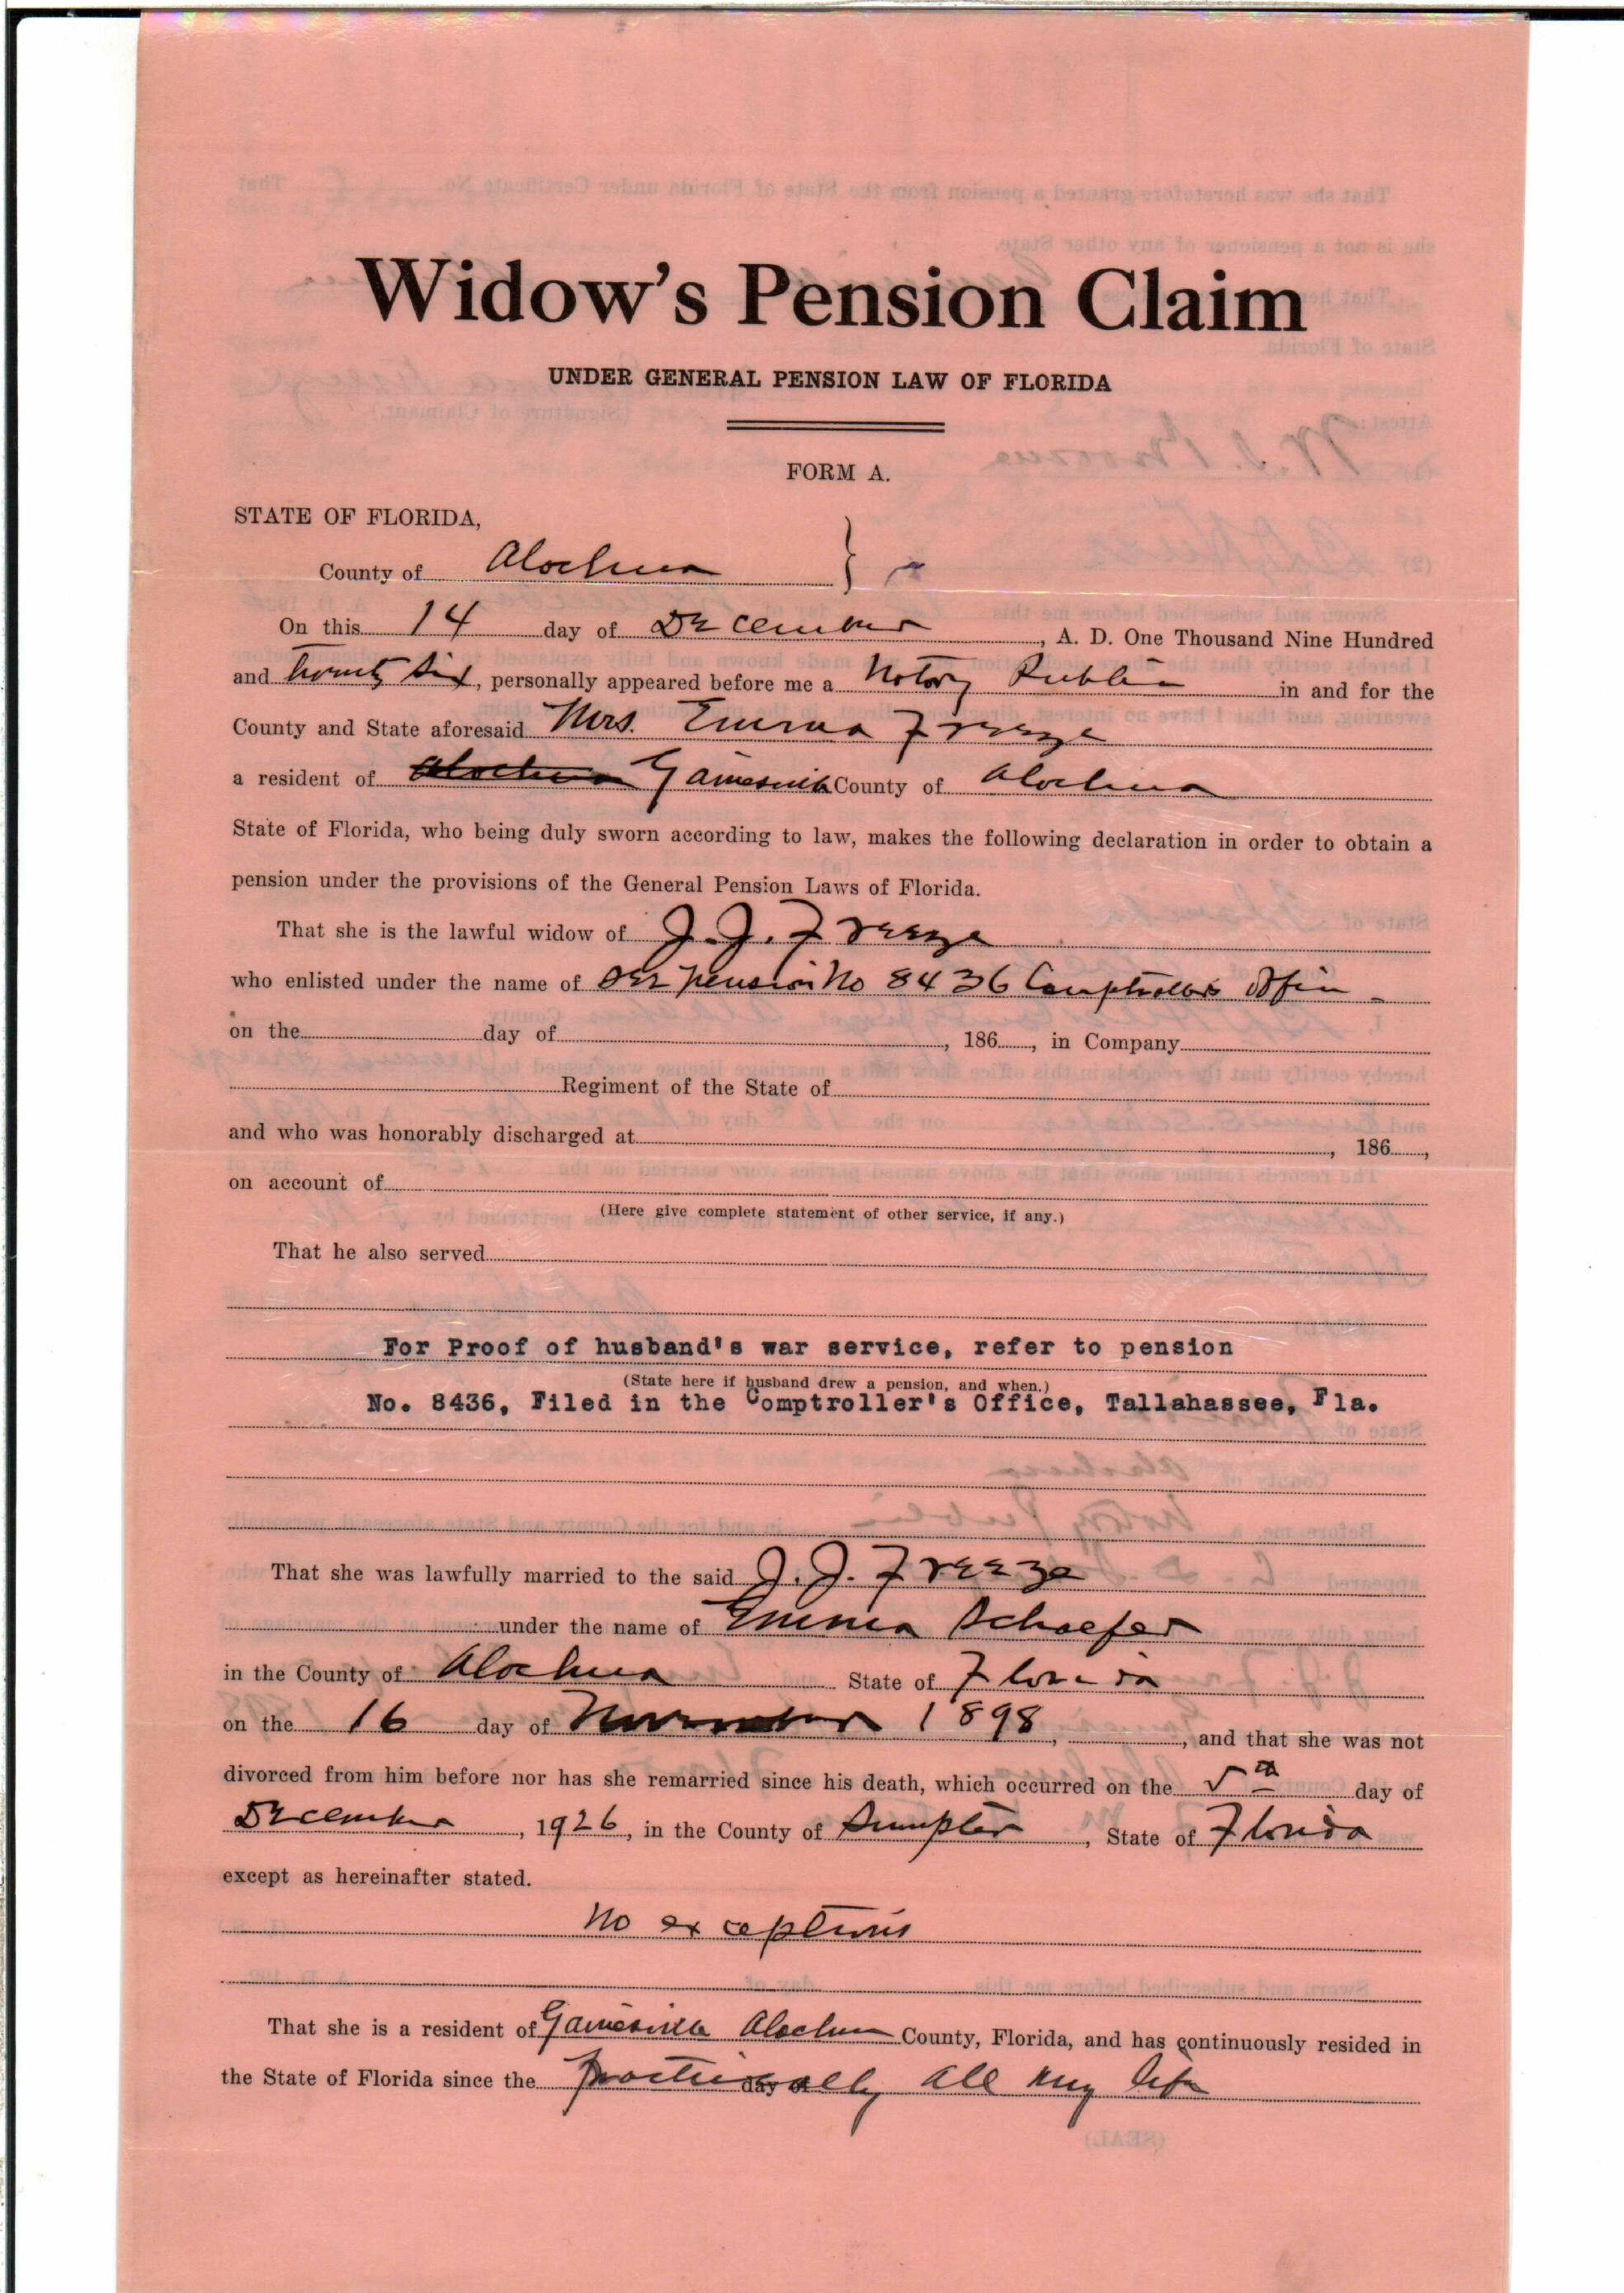 Widow's Pension Claim
UNDER GENERAL PENSION LAW OF FLORIDA
FORM A.
STATE OF FLORIDA,
County of Alachua }
On this 14 day of December, A. D. One Thousand Nine Hundred
and twenty six, personally appeared before me a Notary Public in and for the
County and State aforesaid Mrs. Emma Freeze
a resident of Alachua Gainesville County of Alachua
State of Florida, who being duly sworn according to law, makes the following declaration in order to obtain a
pension under the provisions of the General Pension Laws of Florida.
That she is the lawful widow of J. J. Freeze
who enlisted under the name of See pension No 8436 Comptrollers Office
on the day of , 186 , in Company
Regiment of the State of
and who was honorably discharged at , 186 ,
on account of
(Here give complete statement of other service, if any.)
That he also served
For Proof of husband's war service, refer to pension
(State here if husband drew a pension, and when.)
No. 8436, Filed in the Comptroller's Office, Tallahassee, Fla.
That she was lawfully married to the said J. J. Freeze
under the name of Emma Schaefer
in the County of Alachua State of Florida
on the 16 day of November 1898, , and that she was not
divorced from him before nor has she remarried since his death, which occurred on the 5th day of
December, 1926, in the County of Sumpter, State of Florida
except as hereinafter stated.
No exceptions
That she is a resident of Gainesville Alachua County, Florida, and has continuously resided in
the State of Florida since the practically day of all my life